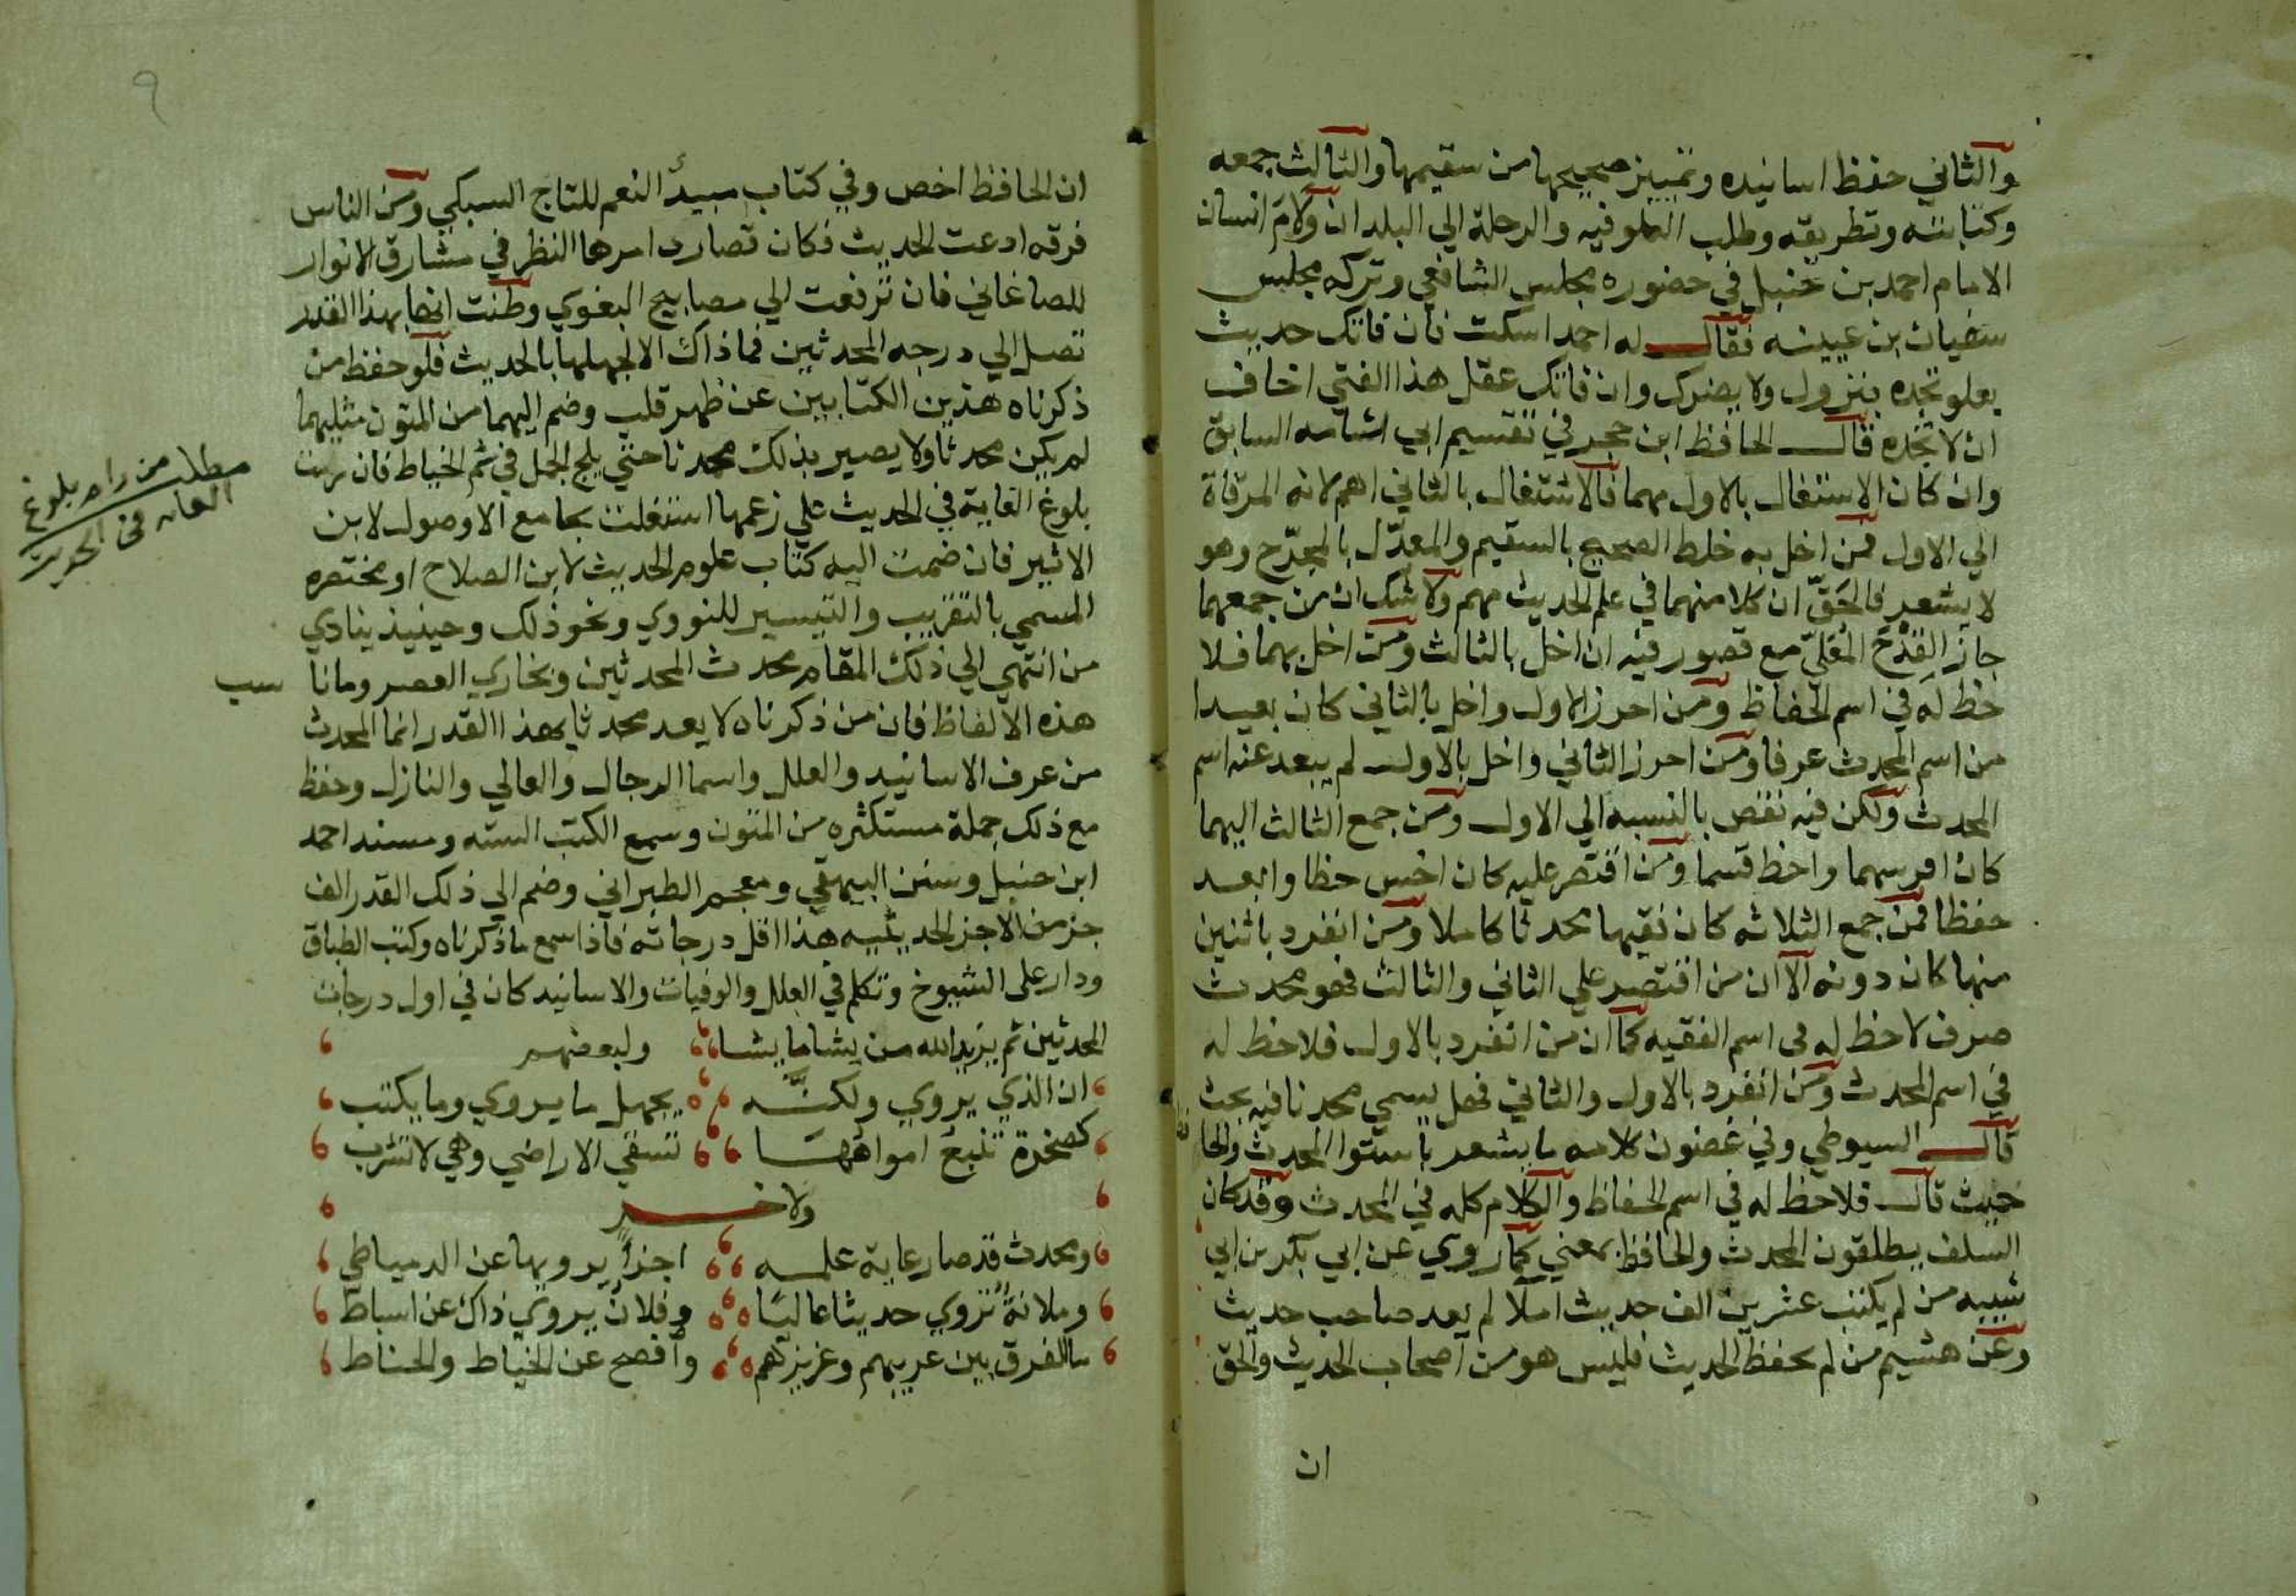 والثاني حفظ اسانيده وتمييز صحيحها من سقيمها والثالث جمعه
وكتابته وتطريقه وطلب العلو فيه والرحلة الي البلدان ولام انسان
الامام احمد بن حنبل في حضوره مجلس الشافعي وتركه مجلس
سفيان بن عيينه فقال له احمد اسكت فان فاتك حديث
بعلو تجده بنزول ولا يضرك وان فاتك عقل هذا الفتي اخاف
ان لا تجده قال الحافظ ابن حجر في تقسيم ابي اشامه السابق
وان كان الاشتغال بالاول مهما فالاشتغال بالثاني اهم لانه المرقاة
الي الاول فمن اخل به خلط الصحيح بالسقيم والمعدّل بالمجرّح وهو
لا يشعر فالحقّ ان كلا منهما في علم الحديث مهم ولا شك ان من جمعهما
حاز القدح المعلّي مع قصور فيه ان اخل بالثالث ومن اخل بهما فلا
حظ له في اسم الحفاظ ومن احرز الاول واخل بالثاني كان بعيدا
من اسم المحدث عرفا ومن احرز الثاني واخل بالاول لم يبعد عنه اسم
المحدث ولكن فيه نقص بالنسبه الي الاول ومن جمع الثالث اليهما
كان اوفر سهما واحظ قسما ومن اقتصر عليه كان اخس حظا وابعد
حفظا فمن جمع الثلاثه كان فقيها محدثا كاملا ومن انفرد باثنين
منها كان دونه الا ان من اقتصر علي الثاني والثالث فهو محدث
صرف لا حظ له في اسم الفقيه كما ان من انفرد بالاول فلا حظ له
في اسم المحدث ومن انفرد بالاول والثاني فهل يسمي محدثا فيه بحث
قال السيوطي وفي غضون كلامه ما يشعر باستوا المحدث والحا
فظ
حيث قال فلا حظ له في اسم الحفاظ والكلام كله في المحدث وقد كان
السلف يطلقون المحدث والحافظ بمعني كما روي عن ابي بكر بن ابي
شيبه من لم يكتب عشرين الف حديث املا لم يعد صاحب حديث
وعن هشيم من لم يحفظ الحديث فليس هو من اصحاب الحديث والحق
ان
٩
ان الحافظ اخص وفي كتاب مبيد النعم للتاج السبكي ومن الناس
فرقه ادعت الحديث فكان قصاري امرها النظر في مشارق الانوار
للصاغاني فان ترفعت الي مصابيح البغوي وظنت انها بهذا القدر
تصل الي درجه المحدثين فما ذاك الا لجهلها بالحديث فلو حفظ من
ذكرناه هذين الكتابين عن ظهر قلب وضم اليهما من المتون مثليهما
لم يكن محدثا ولا يصير بذلك محدثا حتي يلج الجمل في سم الخياط فان رمت
بلوغ الغاية في الحديث علي زعمها اشتغلت بجامع الاوصول لابن
الاثير فان ضمت اليه كتاب علوم الحديث لابن الصلاح او مختصره
المسمي بالتقريب والتيسير للنووي ونحو ذلك وحينيذ ينادي
من انتهي الي ذلك المقام محدث المحدثين وبخاري العصر وما نا
سب
هذه الالفاظ فان من ذكرناه لا يعد محدثا بهذا القدر انما المحدث
من عرف الاسانيد والعلل واسما الرجال والعالي والنازل وحفظ
مع ذلك جملة مستكثره من المتون وسمع الكتب السته ومسند احمد
ابن حنبل وسنن البيهقي ومعجم الطبراني وضم الي ذلك القدر الف
جز من الاجزا الحديثيه هذا اقل درجاته فاذا سمع ما ذكرناه وكتب الطباق
ودار علي الشيوخ وتكلم في العلل والوفيات والاسانيد كان في اول درجات
المحدثين ثم يزيد الله من يشا ما يشا ولبعضهم
ان الذي يروي ولكنَّه يجهل ما يروي وما يكتب
كصخرة تنبع امواهها تسقي الاراضي وهي لا تشرب
ولاخر
ومحدث قد صار غاية علمه اجزاً يرويها عن الدمياطي
وفلانةٌ تروي حديثا عاليًا وفلان يروي ذاك عن اسباط
ما الفرق بين عربيهم وعزيزهم وافصح عن الخياط والحناط
مطلب من رام بلوغ
الغايه في الحديث